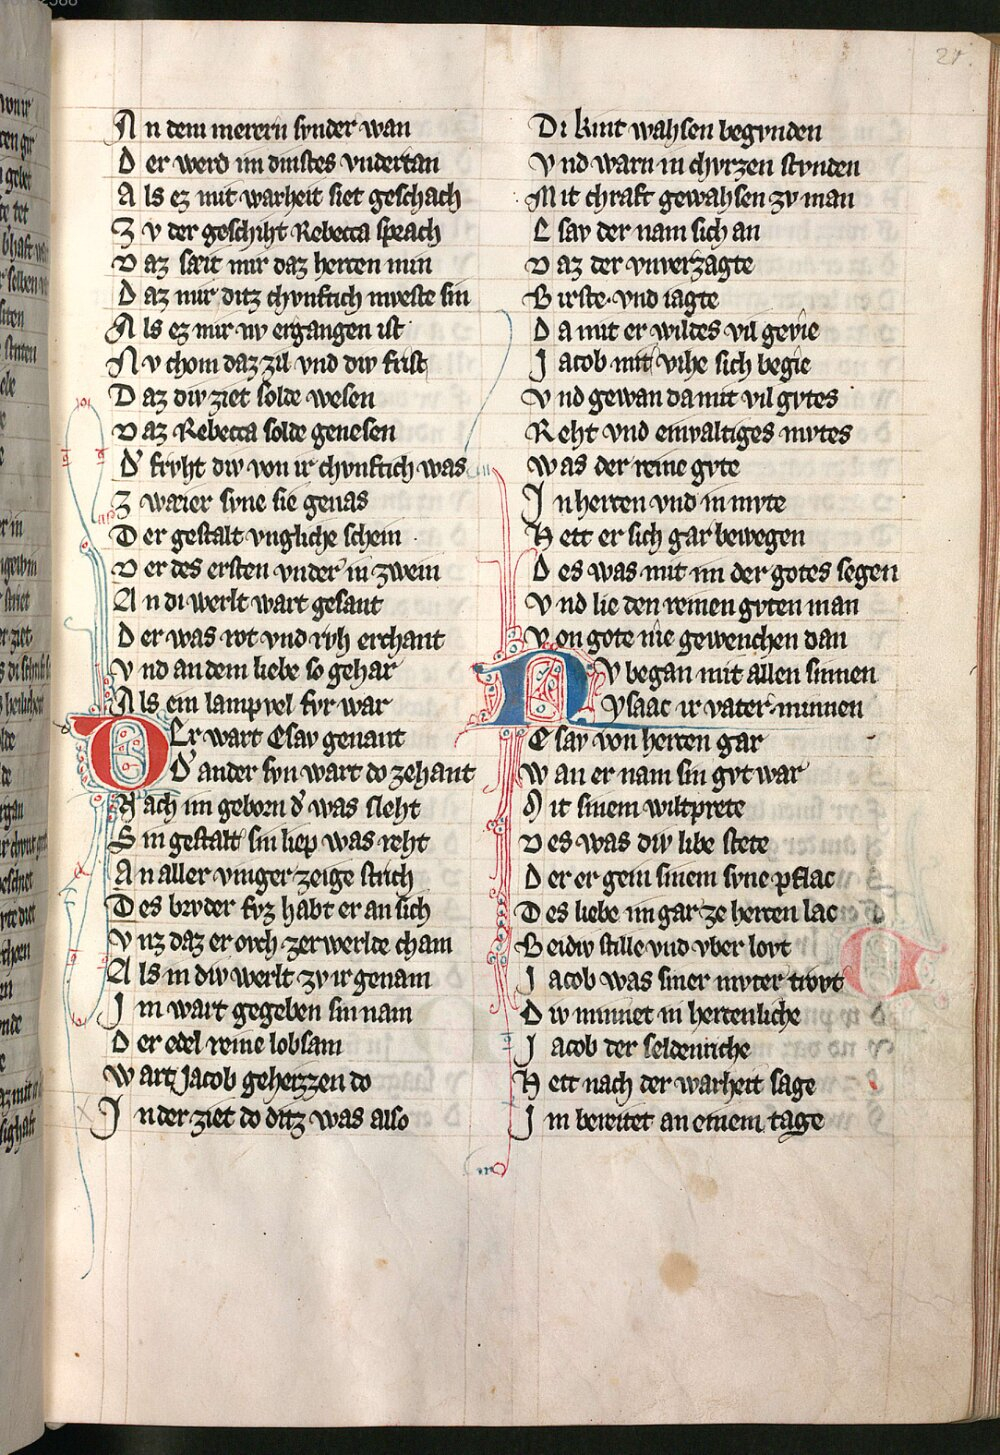 21.
An dem merern synder wan
Der werd im dinstes vndertan
Als ez mit warheit siet geschach
Zv der geschiht Rebecca sprach
Daz sæit mir daz hertzen min
Daz mir ditz chvnftich mveste sin
Als ez mir nv ergangen ist
Nv chom daz zil vnd div frist
Daz div ziet solde wesen
Daz Rebecca solde genesen
D' frvht div von ir chvnftich was
Zwaier svne sie genas
Der gestalt vngliche schein
Der des ersten vnder in zwein
An di werlt wart gesant
Der was rot vnd rvh erchant
Vnd an dem liebe so gehar
Als ein lampvel fvr war
DEr wart Esav genant
D' ander svn wart do zehant
Nach im geborn d' was sleht
Sin gestalt sin liep was reht
An aller vinger zeige strich
Des brvder fvz habt er an sich
Vnz daz er ovch zer werlde cham
Als in div werlt zv ir genam
Im wart gegeben sin nam
Der edel reine lobsam
Wart Jacob geheizzen do
In der ziet do ditz was also
Di kint wahsen begvnden
Vnd warn in chvrzen stvnden
Mit chraft gewahsen zv man
Esav der nam sich an
Daz der vnverzagte
Birste vnd iagte
Da mit er wildes vil gevie
Jacob mit vihe sich begie
Vnd gewan da mit vil gvtes
Reht vnd einvaltiges mvtes
Was der reine gvte
In herten vnd in mvte
Hett er sich gar bewegen
Des was mit im der gotes segen
Vnd lie den reinen gvten man
Von gote nie gewenchen dan
NV began mit allen sinnen
Ysaac ir vater minnen
Esav von herten gar
Wan er nam sin gvt war
Mit sinem wiltprete
Des was div libe stete
Der er gein sinem svne pflac
Des liebe im gar ze herten lac
Beidiv stille vnd vber lovt
Jacob was siner mvter trovt
Div minnet in hertenliche
Jacob der seldenriche
Hett nach der warheit sage
Im bereitet an einem tage